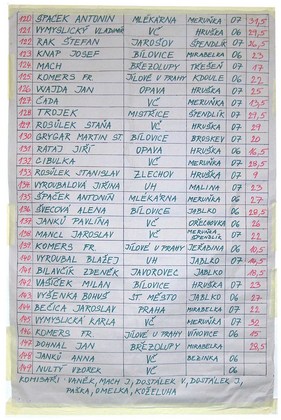 120 ŠPAČEK ANTONÍN MLÉKÁRNA MERUŇKA 07
121 VYMYSLICKÝ VLADIMÍR VČ HRUŠKA 07
122 RAK ŠTEFAN JAROŠOV ŠPENDLÍK 07
123 KNAP JOSEF BÍLOVICE MIRABELKA 06 23
124 MACH BŘEZOLUPY TŘEŠEŇ 07 17
125 KOMERS FR. JÍLOVÉ U PRAHY KDOULE 06 22
126 WAJDA JAN OPAVA HRUŠKA 06 25
127 ČADA VČ MERUŇKA 07
128 TROJEK MISTŘICE ŠPENDLÍK 07
129 ROSŮLEK STAŇA VČ HRUŠKA 07 29
130 GRYGAR MARTIN ST. BÍLOVICE BROSKEV 07 20
131 RATAJ JIŘÍ OPAVA HRUŠKA 06
132 CIBULKA VČ MERUŇKA 07
133 ROSŮLEK STANISLAV ZLECHOV HRUŠKA 07 9
134 VÝROUBALOVÁ JIŘINA UH MALINA 07 23
135 ŠPAČEK ANTONÍN MLÉKÁRNA MERUŇKA 06 27
136 ŠVECOVÁ ALENA BÍLOVICE JABLKO 06
137 JANKŮ PAVLÍNA VČ OŘECHOVKA 06 26
138 MANCL JAROSLAV VČ MERUŇKA, ŠPENDLÍK 06 22
139 KOMERS FR. JÍLOVÉ U PRAHY JEŘABINA 06
140 VÝROUBAL BLAŽEJ UH JABLKO 07
141 BILAVČÍK ZDENĚK JAVOROVEC JABLKO 07
142 VAŠÍČEK MILAN BÍLOVICE HRUŠKA 07 23
143 VYŠENKA BOHUŠ ST. MĚSTO JABLKO 06 27
144 BEČICA JAROSLAV PRAHA MIRABELKA 06 22
145 VYMYSLICKÁ KARLA VČ MERUŇKA 07 32
146 KOMERS FR. JÍLOVÉ U PRAHY VÍNOVICE 06
147 DOHNAL JAN BŘEZOLUPY MIRABELKA
148 JANKŮ ANNA VČ BEZINKA 06
149 NULTÝ VZOREK VČ 06
KOMISAŘI: VANĚK, MACH J, DOSTÁLEK V, DOSTÁLEK J,
PAŠKA, OMELKA, KOŽELUHA